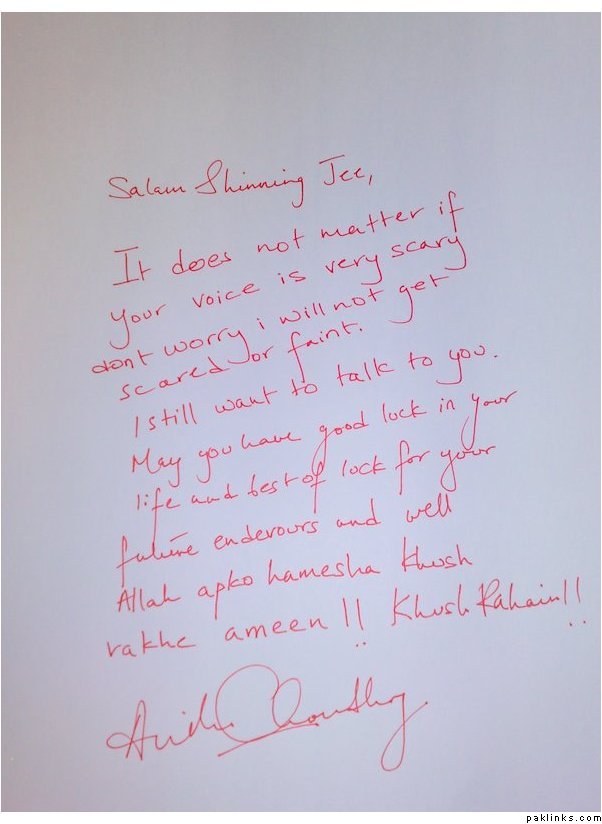 Salam Shinning Jee,
It does not matter if
your voice is very scary
dont worry i will not get
scared or faint.
I still want to talk to you.
May you have good luck in your
life and best of luck for your
future enderours and well
Allah apko hamesha khush
rakhe ameen!! Khush Rahain!!
Choudhry
paklinks.com